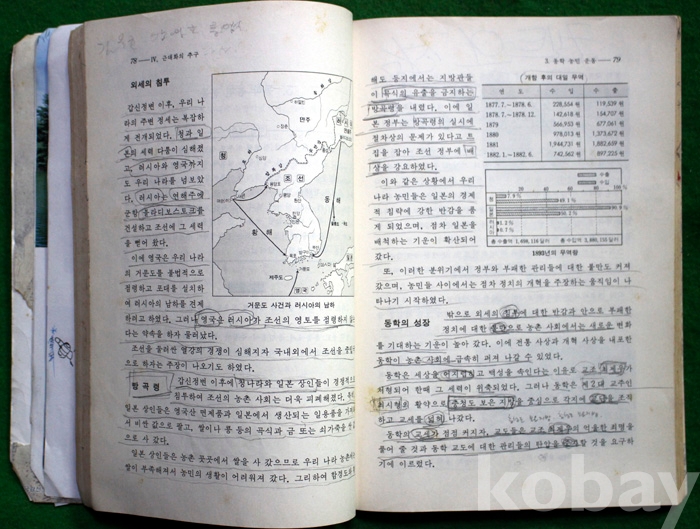 78 — Ⅳ. 근대화의 추구
외세의 침투
갑신정변 이후, 우리 나
라의 주변 정세는 복잡하
게 전개되었다. 청과 일
본의 세력 다툼이 심해졌
고, 러시아와 영국까지
도 우리 나라를 넘보았
다. 러시아는 연해주에
군항 블라디보스토크를
건설하고 조선에 그 세력
을 뻗어 왔다.
이에 영국은 우리 나라
의 거문도를 불법적으로
점령하고 포대를 설치하
여 러시아의 남하를 견제
하려고 하였다. 그러나 영국은 러시아가 조선의 영토를 점령하지 않는
다는 약속을 하자 물러났다.
만주
청
조선
동해
황해
제주도
영국
거문도 사건과 러시아의 남하
조선을 둘러싼 열강의 경쟁이 심해지자 국내외에서 조선을 중립
으로 하자는 주장이 나오기도 하였다.
방곡령
갑신정변 이후에 청나라와 일본 상인들이 경쟁적으
침투하여 조선의 농촌 사회는 더욱 피폐해졌다.
일본 상인들은 영국산 면제품과 일본에서 생산되는 일용품을 가져
어 비싼 값으로 팔고, 쌀이나 콩 등의 곡식과 금 또는 쇠가죽을 싼
으로 사 갔다.
일본 상인들은 농촌 곳곳에서 쌀을 사 갔으므로 우리 나라 농촌에
쌀이 부족해져서 농민의 생활이 어려워져 갔다. 그리하여 함경도와
3. 동학 농민 운동 — 79
해도 등지에서는 지방관들
이 곡식의 유출을 금지하는
방곡령을 내렸다. 이에 일
본 정부는 방곡령의 실시에
절차상의 문제가 있다고 트
집을 잡아 조선 정부에 배
상을 강요하였다.
이와 같은 상황에서 우리
나라 농민들은 일본의 경제
적 침략에 강한 반감을 품
게 되었으며, 점차 일본을
배척하는 기운이 확산되어
갔다.
개항 후의 대일 무역
연도 수입 수출
1877.7.—1878.6. 228,554원 119,539원
1878.7.—1878.12. 142,618원 154,707원
1879 566,953원 677,061원
1880 978,013원 1,373,672원
1881 1,944,731원 1,882,639원
1882.1.—1882.6. 742,562원 897,225원
수출
수입
1893년의 무역량
또, 이러한 분위기에서 정부와 부패한 관리들에 대한 불만도 커져
갔으며, 농민들 사이에서는 점차 정치의 개혁을 주장하는 움직임이 나
타나기 시작하였다.
동학의 성장
밖으로 외세의 침투에 대한 반감과 안으로 부패한
정치에 대한 불만으로 농촌 사회에서는 새로운 변화
를 기대하는 기운이 높아 갔다. 이에 전통 사상과 개혁 사상을 내포한
동학이 농촌 사회에 급속히 퍼져 나갈 수 있었다.
동학은 세상을 어지럽히고 백성을 속인다는 이유로 교조 최제우가
처형되어 한때 그 세력이 위축되었다. 그러나 동학은 제2대 교주인
최시형의 활약으로 충청도 보은 지방을 중심으로 각지에 교단을 조직
하고 교세를 넓혀 나갔다.
동학의 교세가 점점 커지자, 교도들은 교조 최제우의 억울한 죄명을
풀어 줄 것과 동학 교도에 대한 관리들의 탄압을 중지할 것을 요구하
기에 이르렀다.
kobay